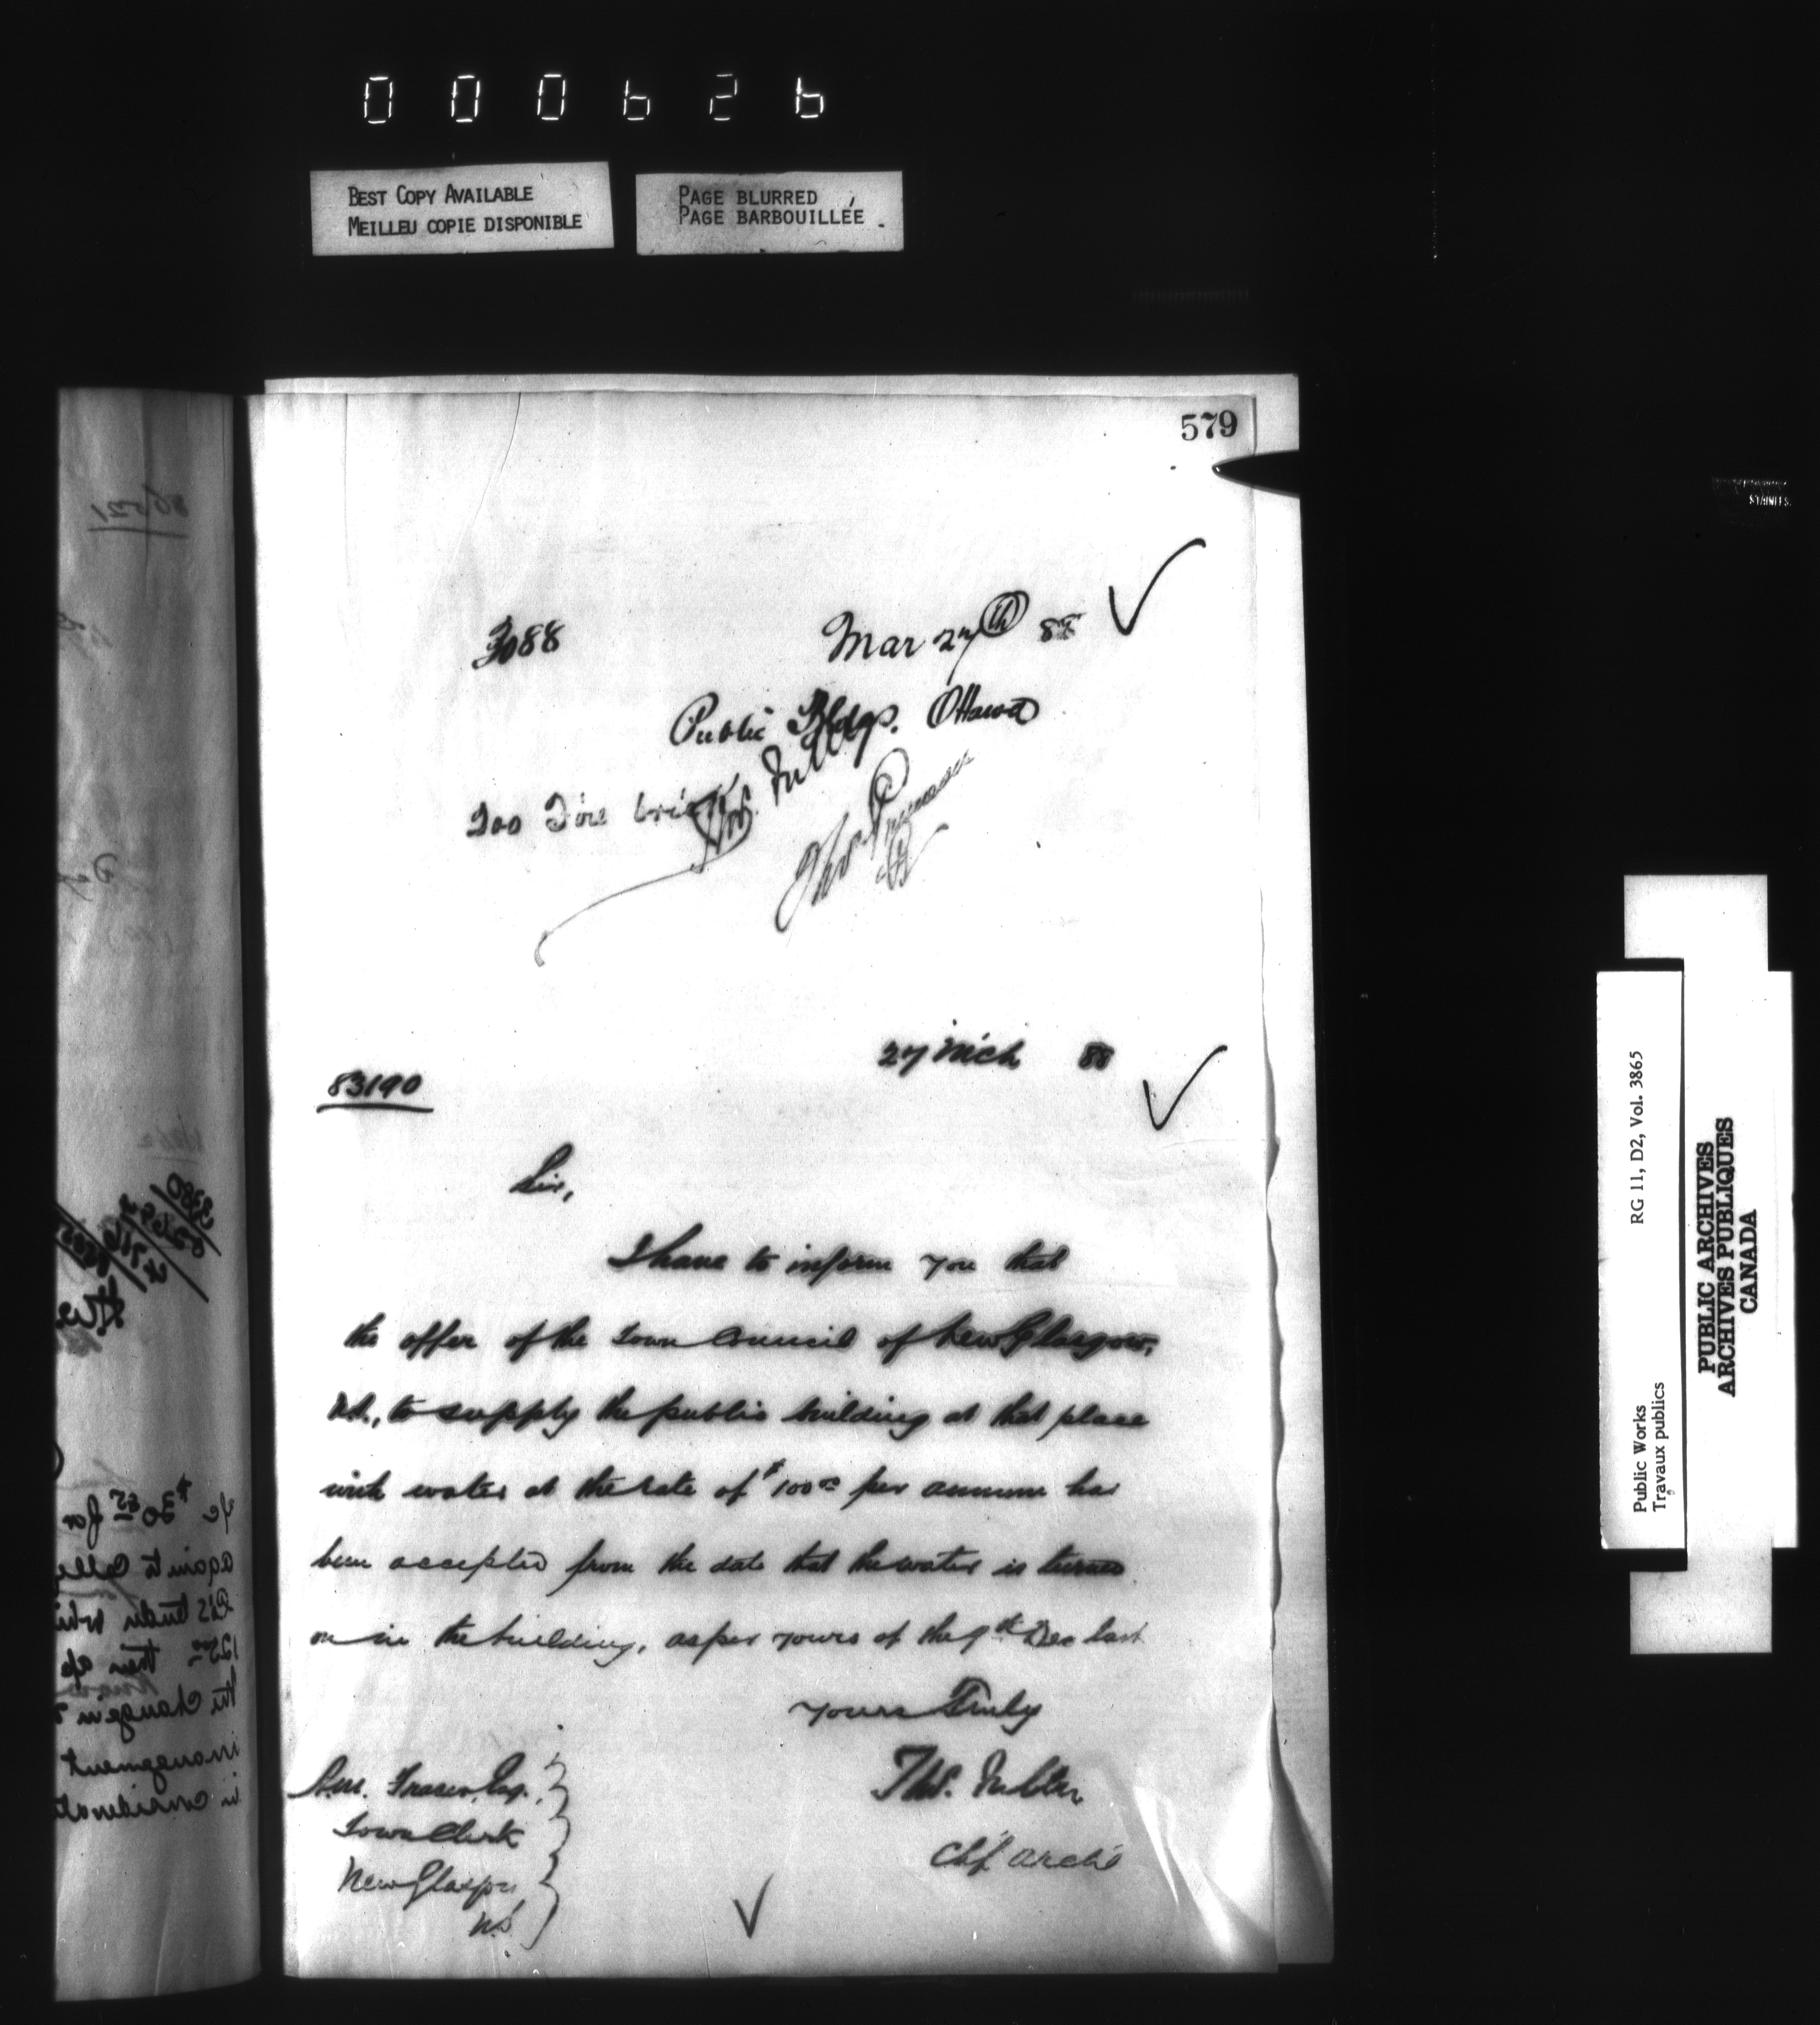 000626
BEST COPY AVAILABLE
MEILLEU COPIE DISPONIBLE
PAGE BLURRED
PAGE BARBOUILLÉE
579
3088
Mar 27th 88
Public Bldgs. Ottawa
200 Fire brick
Thos.
83190
27 Mch 88
Sir,
I have to inform you that
the offer of the Town Council of New Glasgow,
N.S., to supply the public building at that place
with water at the rate of $100 00 per annum has
been accepted from the date that the water is turned
on in the building, as per yours of the 9th Dec last
Yours Truly
Thos. Fuller
Chf Archt
Fraser, Esq.,
Town Clerk
New Glasgow
N.S.
$30 85 for
again to
the change in
management
in
Public Works
Travaux publics
RG 11, D2, Vol. 3865
PUBLIC ARCHIVES
ARCHIVES PUBLIQUES
CANADA